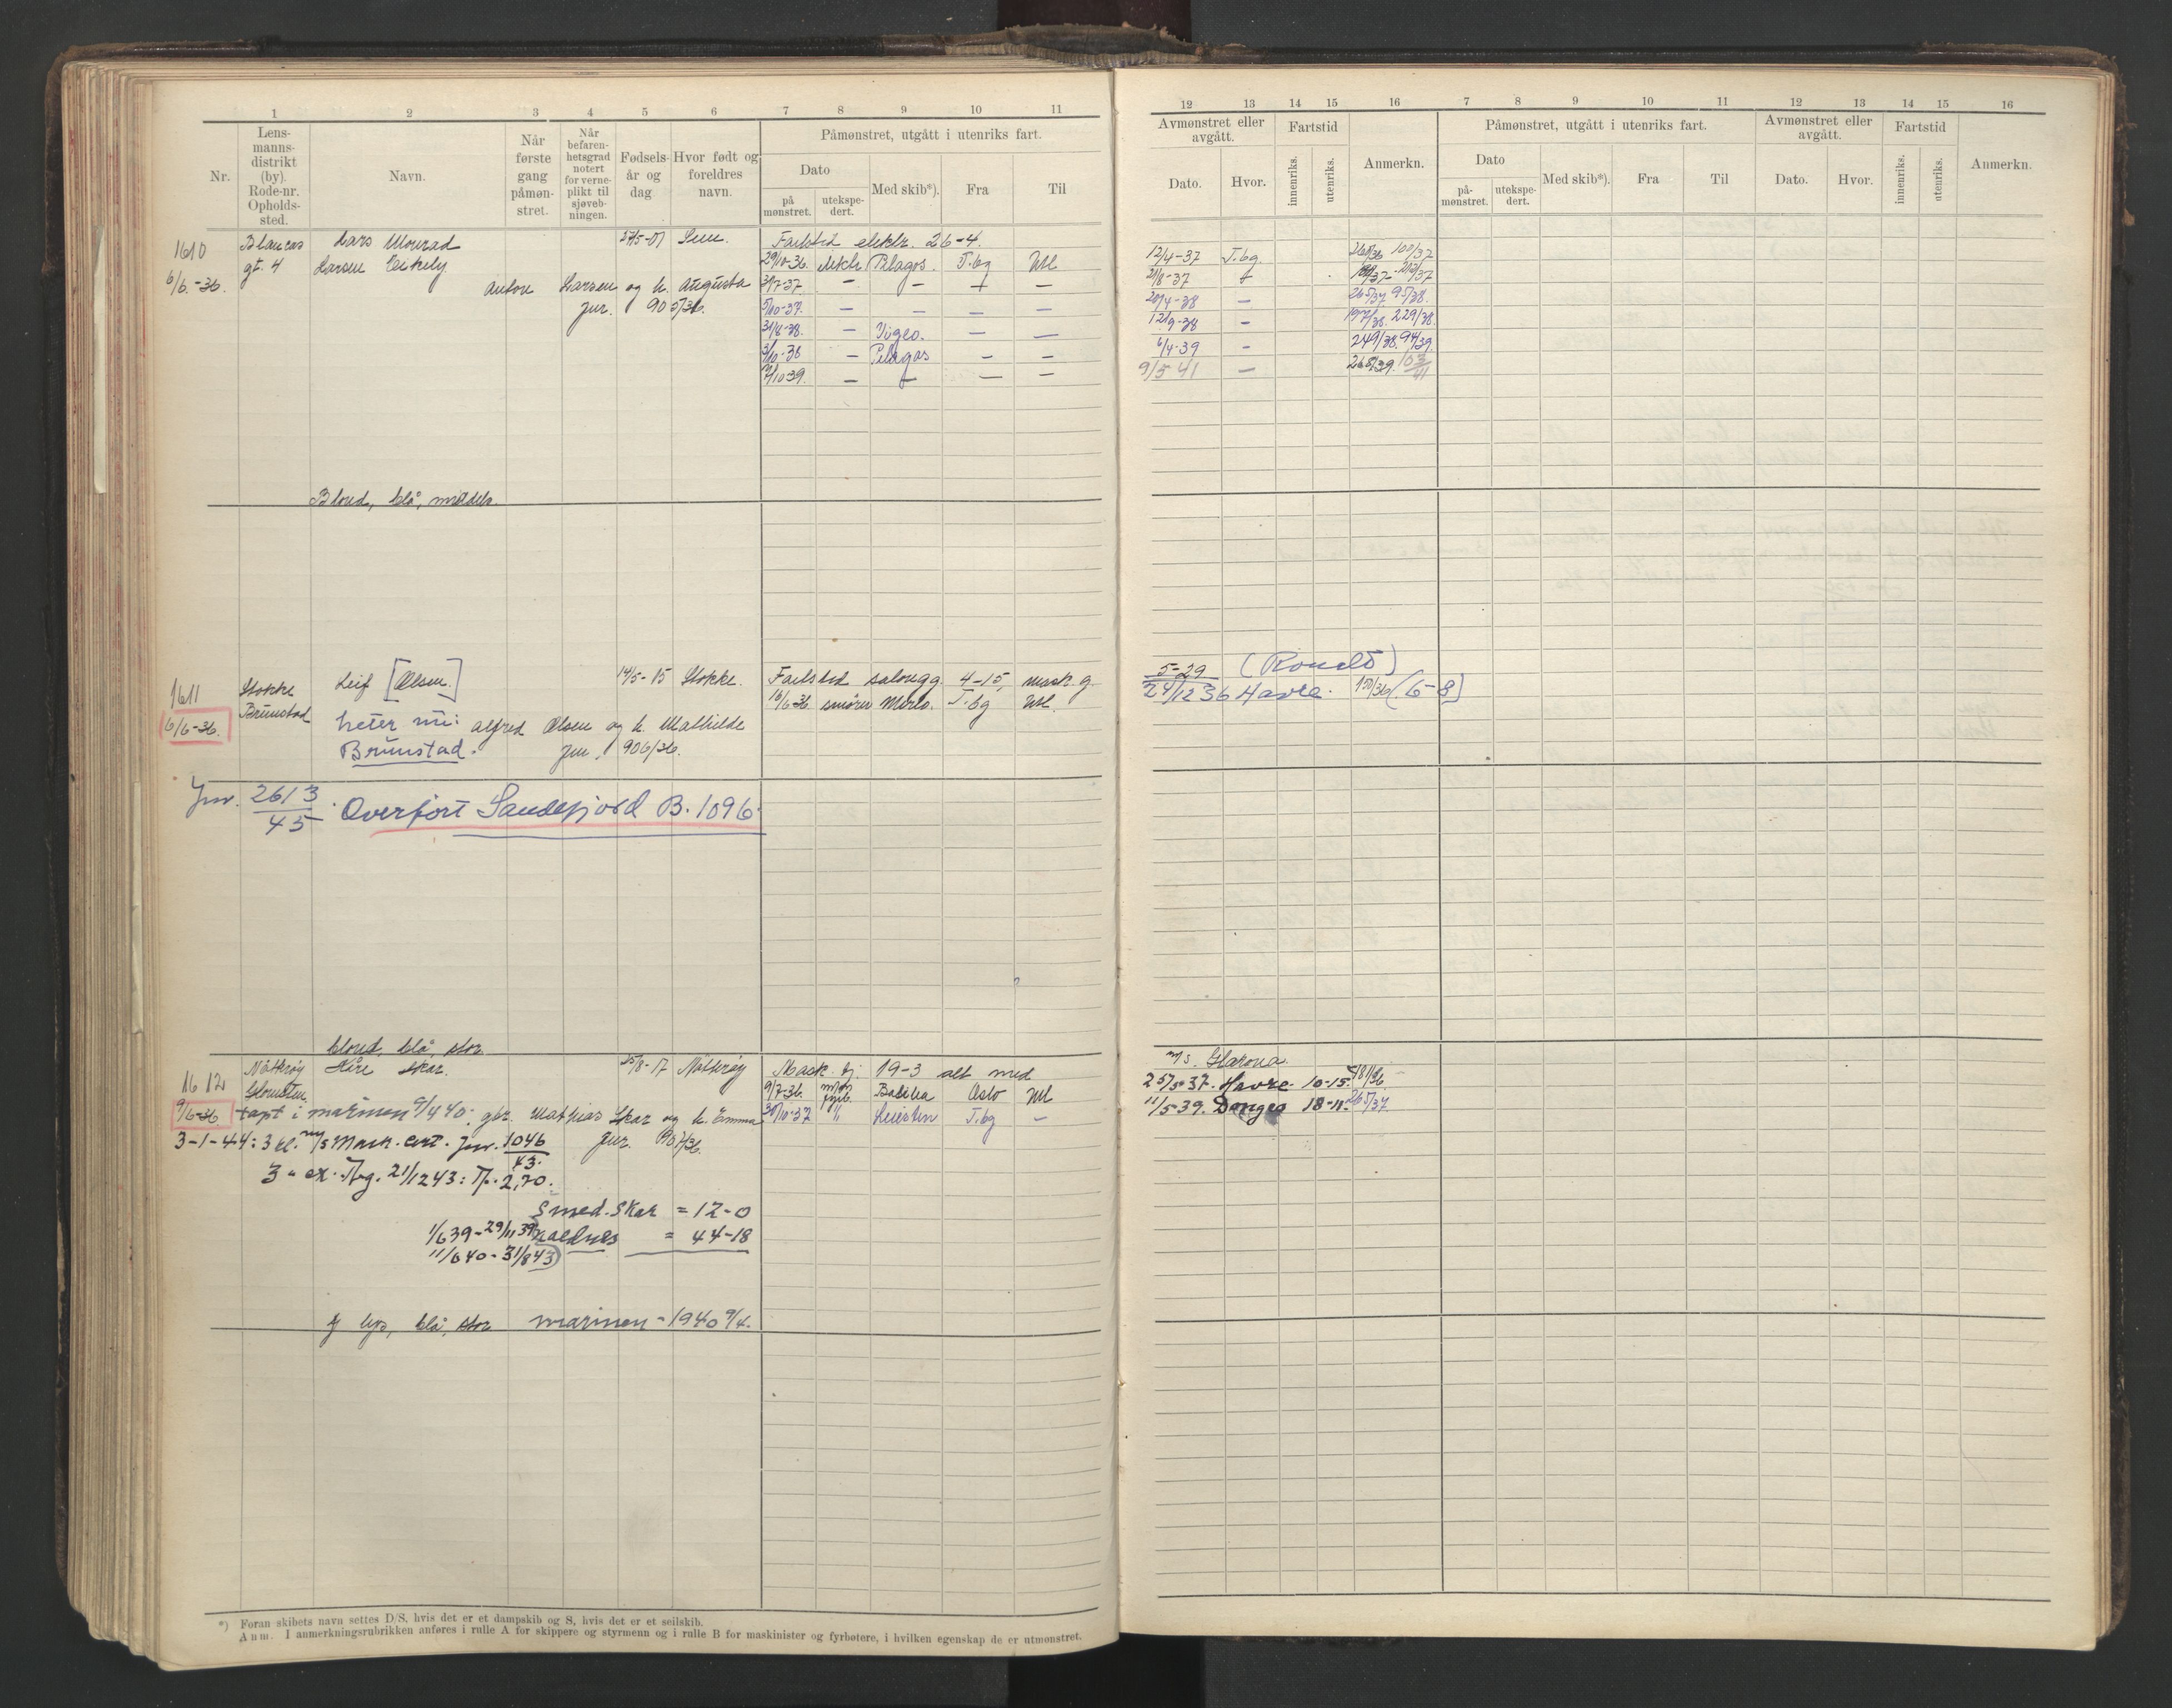 1 2 3 4 5 6 7 8 9 10 11
Nr.
Lens-
manns-
distrikt
(by).
Rode-nr.
Opholds-
sted.
Navn.
Når
første
gang
påmøn-
stret.
Når
befaren-
hetsgrad
notert
for verne-
plikt til
sjøveb-
ningen.
Fødsels-
år og
dag
Hvor født og
foreldres
navn.
Påmønstret, utgått i utenriks fart.
Dato
på
mønstret.
utekspe-
dert.
Med skib*).
Fra
Til
1610 Lars Monrad 27/5-07 Sem. Fartstid elektr. 26-4.
6/6.-36. gt. 4 Larsen Eikely 29/10-36. elektr. Pelagos. T.bg Utl
Anton Larsen og h. Augusta 3/7-37 — — — —
Jur. 905/36. 5/10-37. — — — —
— —
3/10-38 — Pelagos — —
7/10 39. — — — —
Blond, blå, middels.
1611 Stokke Leif [Olsen] 14/5-15 Stokke. Fartstid salongg. 4-15, mask. g.
6/6-36. Brunstad 16/6-36 smører T.bg Utl.
heter nu: Alfred Olsen og h. Mathilde
Brunstad. Jur. 906/36.
Jnr. 2613/45. Overført Sandefjord B. 1096.
blond, blå, stor
1612 Nøtterøy Kåre Skar. 25/8-17 Nøtterøy Mask. 19-3 alt med
9/6-36 9/7-36. Oslo Utl
tapt i marinen 9/4 40. gbr. Mathias Skar og h. Emma 30/10-37 " T.bg —
3-1-44: 3 kl. m/s Mask. cert. Jnr. 1046/43. Jur. 907/36.
3 " ex. Tbg. 21/12 43: 2,70.
Smed. Skar = 12-0
1/6 39 - 29/11 39 Kaldnes = 44-18
11/6 40 - 31/8 43)
lys, blå, stor marinen - 1940 9/4.
*) Foran skibets navn settes D/S, hvis det er et dampskib og S, hvis det er et seilskib.
Anm. I anmerkningsrubrikken anføres i rulle A for skippere og styrmenn og i rulle B for maskinister og fyrbøtere, i hvilken egenskap de er utmønstret.
12 13 14 15 16 7 8 9 10 11 12 13 14 15 16
Avmønstret eller
avgått.
Dato.
Hvor.
Fartstid
innenriks.
utenriks.
Anmerkn.
Påmønstret, utgått i utenriks fart.
Dato
på-
mønstret.
utekspe-
dert.
Med skib*).
Fra
Til
Avmønstret eller
avgått.
Dato.
Hvor.
Fartstid
innenriks.
utenriks.
Anmerkn.
12/4-37 T.bg. 100/37
21/8-37 —
20/4-38 — 265/37 95/38.
12/9-38 — 197/38. 229/38.
6/4-39 — 249/38. 94/39.
9/5 41 — 268/39. 103/41
5-29 (Ronald)
24/12 36 Havre. (6-8)
m/s. Glarona.
25/5 37. Havre. 10-15.
11/5-39. Donges 18-11. 265/37